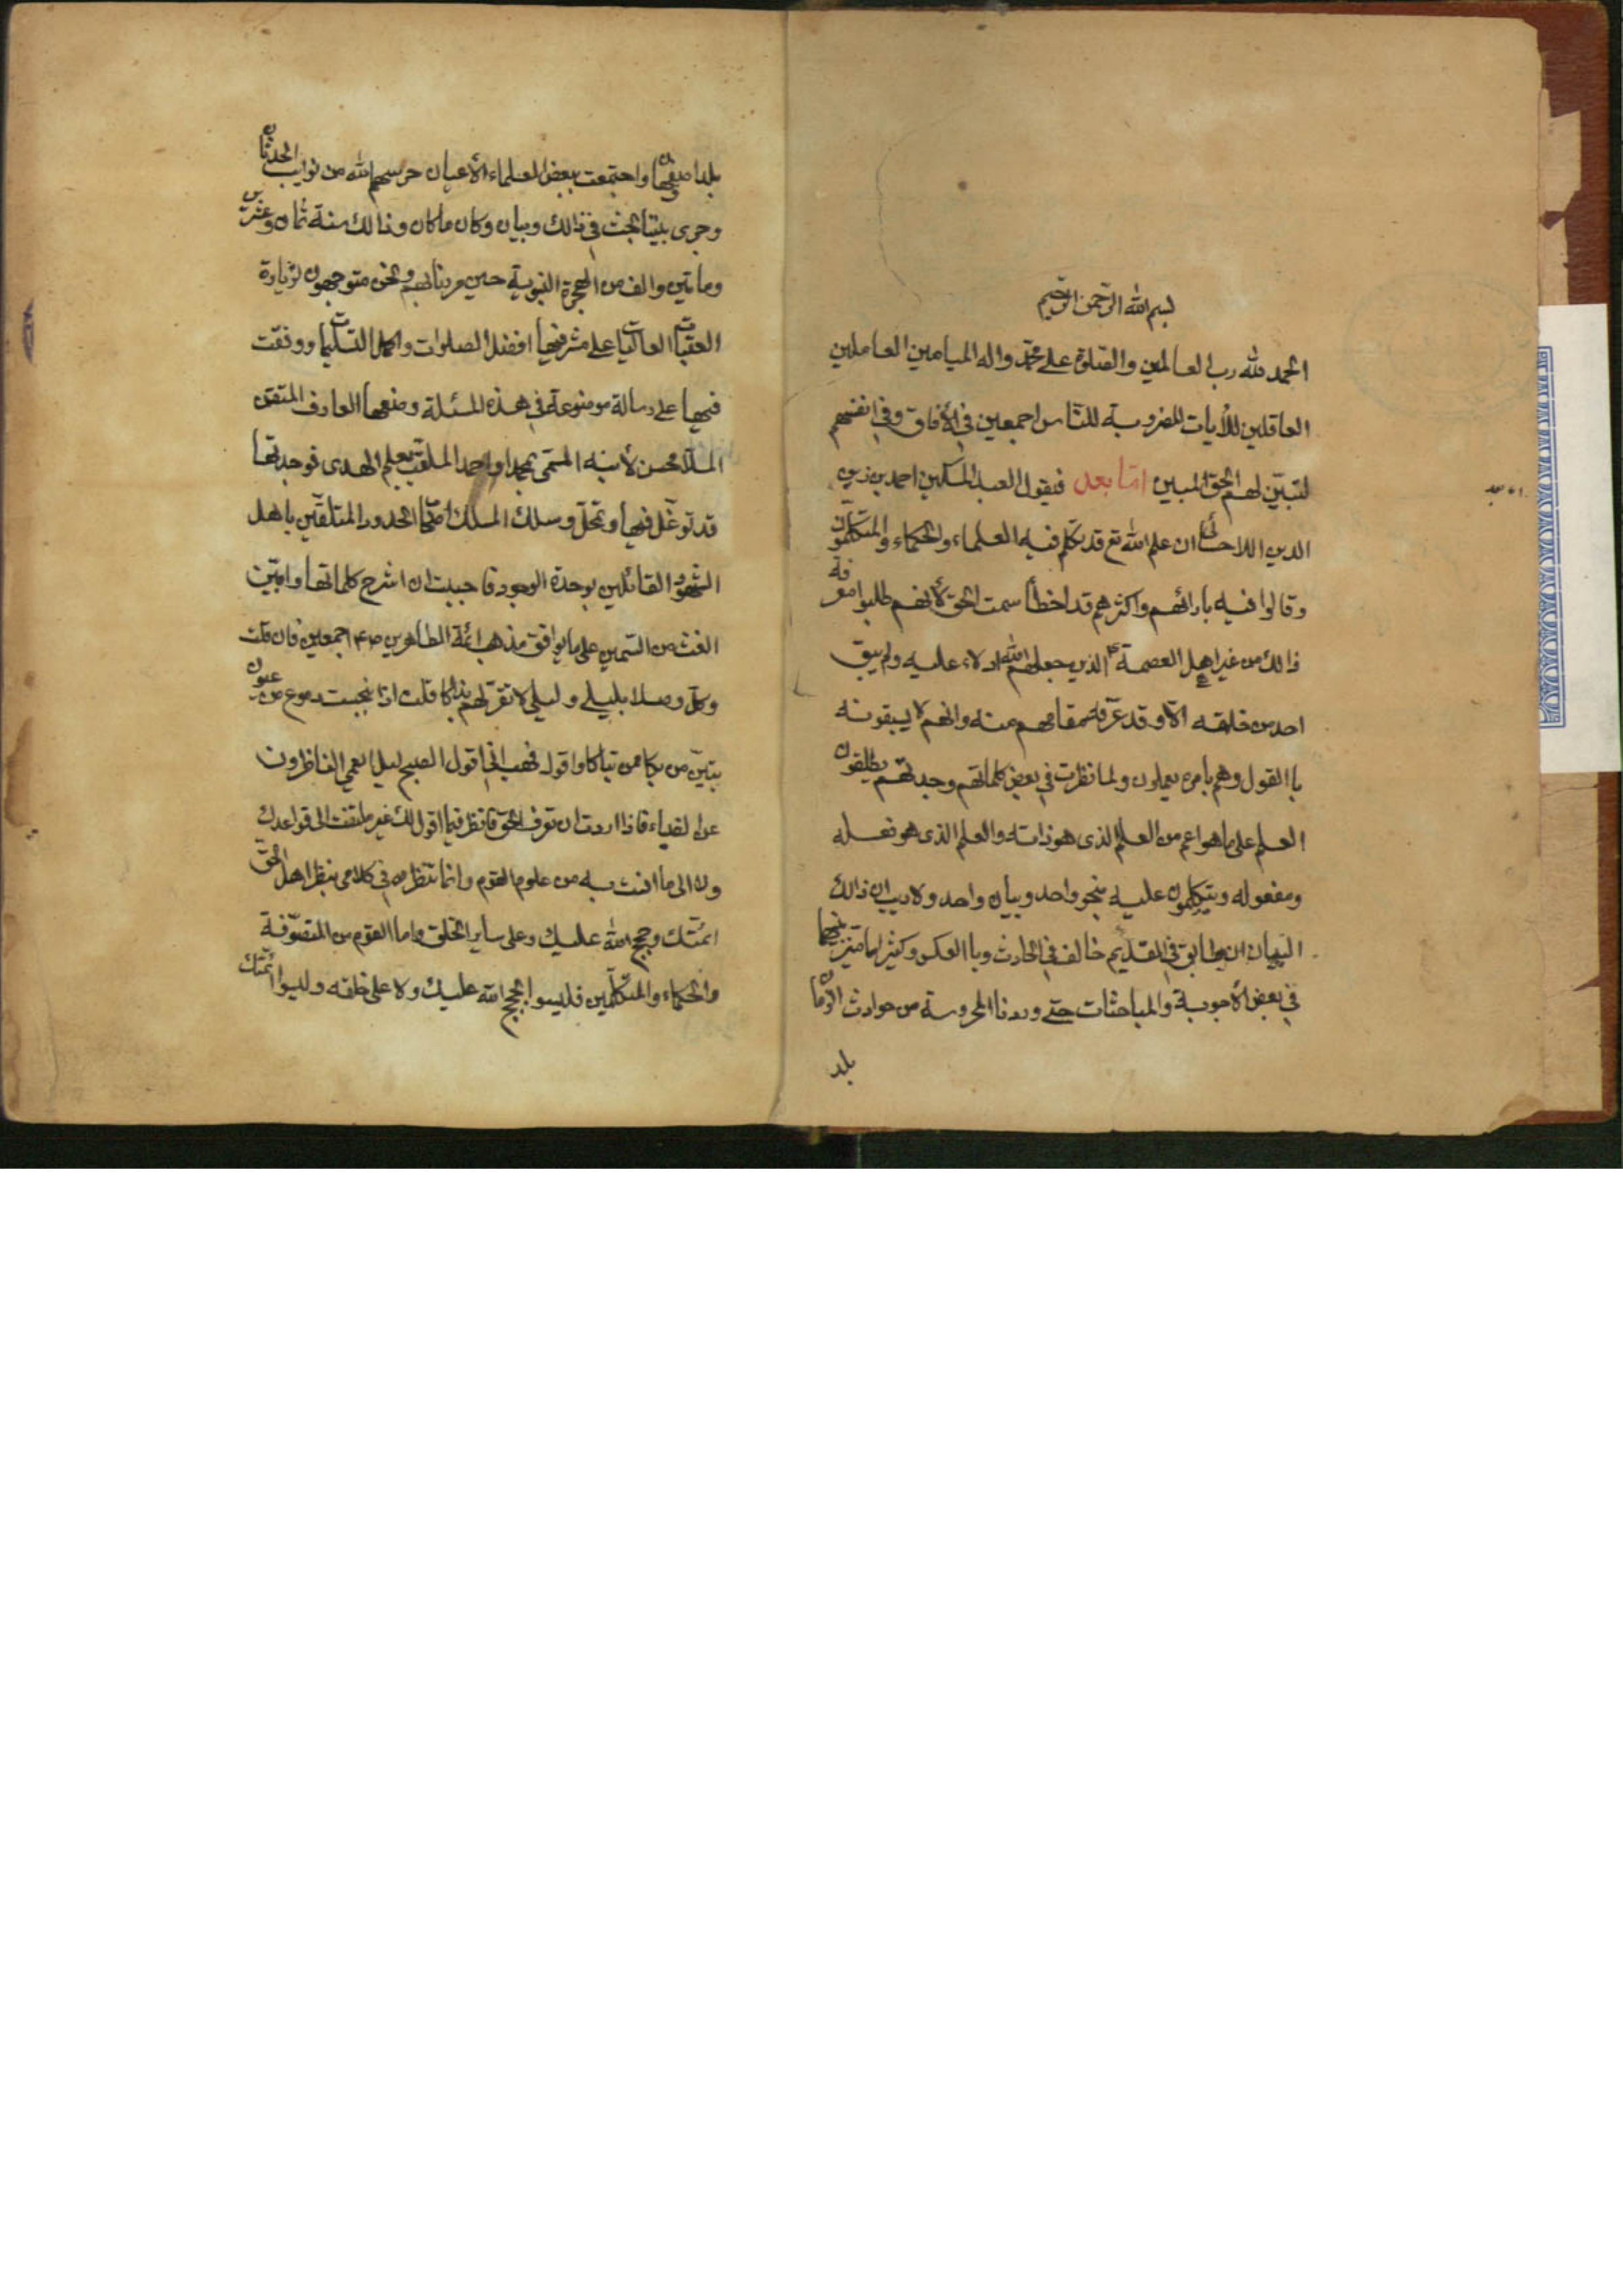 بسم الله الرحمن الرحيم
الحمد لله رب العالمين والصلوة على محمد واله الميامين العاملين
العاقلين للأيات المضروبة للناس اجمعين في الأفاق وفي انفسهم
لتبين لهم الحق المبين اما بعد فيقول العبد المسكين احمد بن زين
الدين الاحسائي ان علم الله تع قد تكلم فيه العلماء والحكماء والمتكلمون
وقالوا فيه بارائهم واكثرهم قد اخطأ سمت الحق لأنهم طلبوا معرفة
ذالك من غير اهل العصمة ع الذين جعلهم الله ادلاء عليه ولم يبق
احد من خلقه الا وقد عرفه مقامهم منه وانهم لا يسبقونه
باالقول وهم بامره يعملون ولما نظرت في بعض كلماتهم وجدتهم يطلقون
العلم على ما هو اعم من العلم الذى هو ذاته والعلم الذى هو فعله
ومفعوله ويتكلمون عليه بنحو واحد وبيان واحد ولا ريب ان ذالك
البيان ان طابق في القديم خالف في الحادث وباالعكس وكثيرا ما تميز بينهما
في بعض الأجوبة والمباحثات حتى وردنا المحروسة من حوادث الازمان
بلد
بلد اصفهان واجتمعت ببعض العلماء الأعيان حرسهم الله من نوايب الحدثان
وجرى بيننا بحث في ذالك وبيان وكان ما كان وذالك سنة ثمان وعشرين
ومأتين والف من الهجرة النبوية حين مررنا بهم ونحن متوجهون لزيارة
العتبات العاليات على مشرفيها افضل الصلوات واكمل التسليمات ووقفت
فيها على رسالة موضوعة في هذه المسئلة وضعها العارف المتقن
الملا محسن لأبنه المسمى بمحمد او احمد الملقب بعلم الهدى فوجدتها
قد توغل فيها وتمحل وسلك المسلك اصحاب الحدود المتلقين باهل
الشهود القائلين بوحدة الوجود فاحببت ان اشرح كلماتها وابين
الغث من السمين على ما يوافق مذهب ائمة الطاهرين ص ع م اجمعين فان قلت
وكل وصلا بليلى وليلى لا تقر لهم بذاكا قلت اذا انبجست دموع من عيون
تبين من بكا ممن تباكا واقول فهب اني اقول الصبح ليل ايعمى الناظرون
عن الضياء فاذا اردت ان تعرف الحق فانظر فيما اقول لك غير ملتفت الى قواعدك
ولا الى ما انست به من علوم القوم وانما تنظر في كلامى بنظر اهل الحق
ائمتك وحجج الله عليك وعلى ساير الخلق واما القوم من المتصوفة
والحكماء والمتكلمين فليسوا بحجج الله عليك ولا على خلقه وليسوا ائمتك